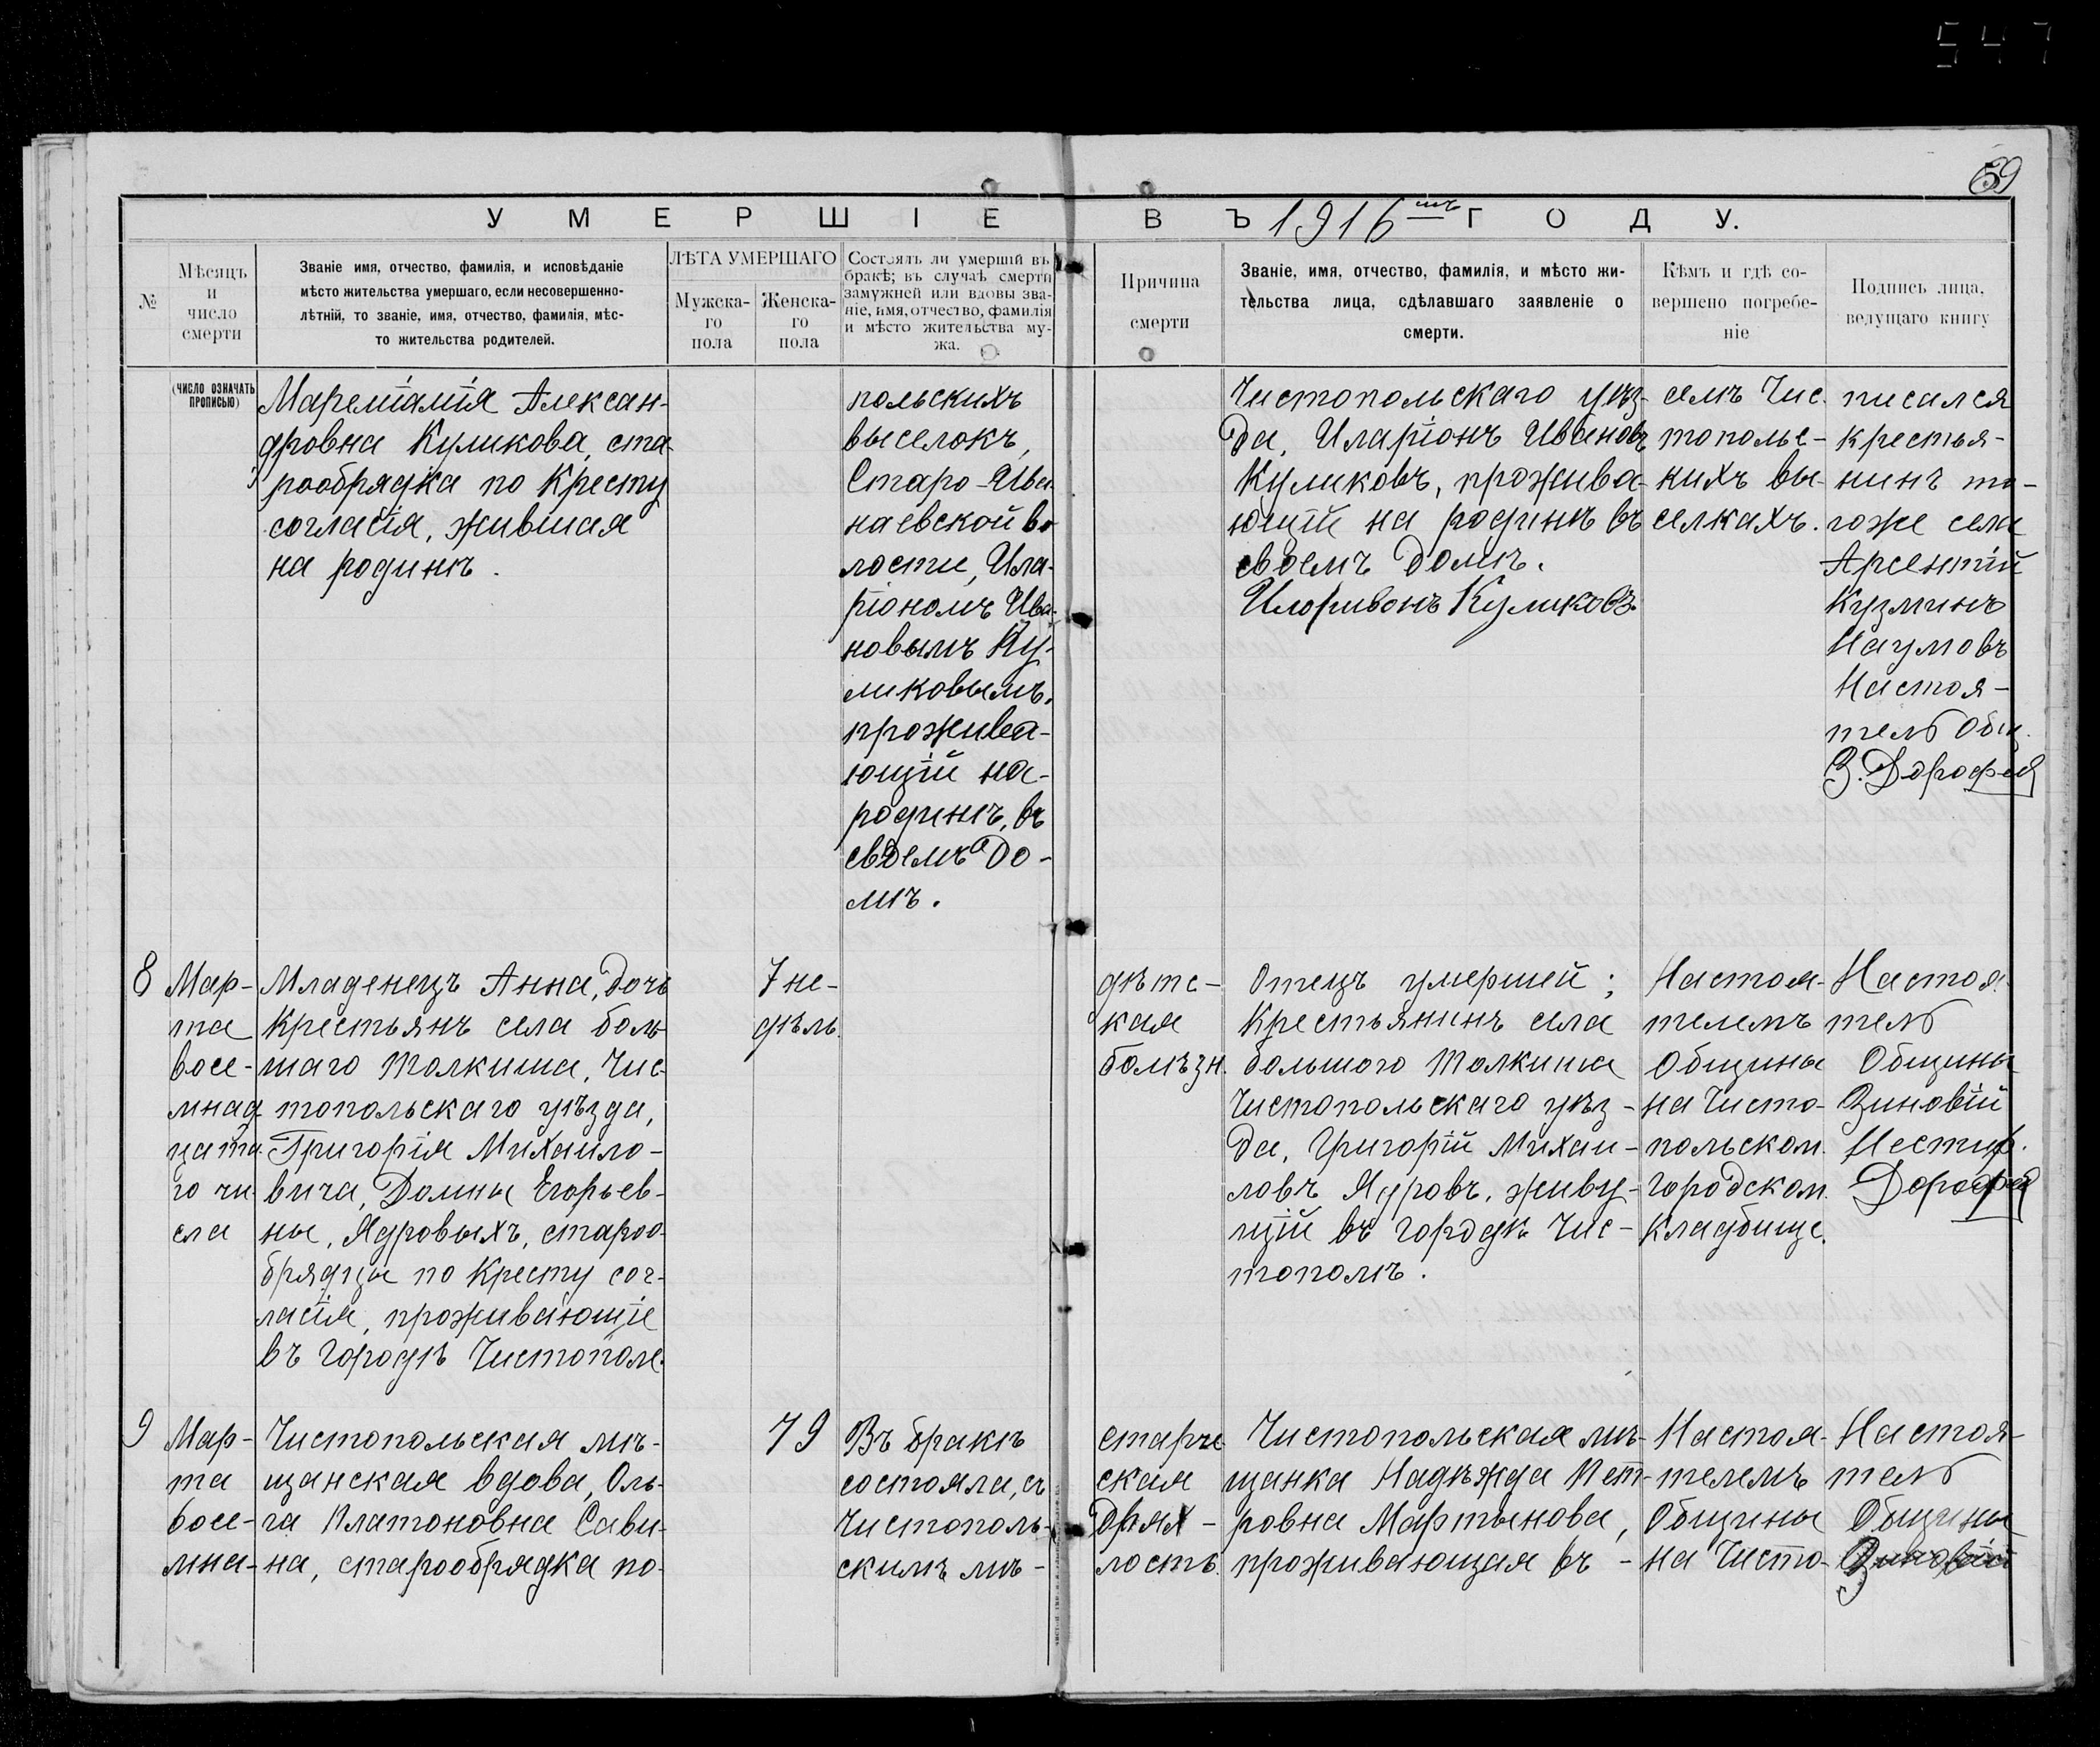 547
59
УМЕРШІЕ ВЪ 1916мъ ГОДУ.
№
Мѣсяцъ
и
число
смерти
(ЧИСЛО ОЗНАЧАТЬ
ПРОПИСЬЮ)
Званіе имя, отчество, фамилія, и исповѣданіе
мѣсто жительства умершаго, если несовершенно-
лѣтній, то званіе, имя, отчество, фамилія, мѣс-
то жительства родителей.
ЛѢТА УМЕРШАГО
Мужска-
го
пола
Женска-
го
пола
Состоялъ ли умершій въ
бракѣ; въ случаѣ смерти
замужней или вдовы зва-
ніе, имя, отчество, фамилія
и мѣсто жительства му-
жа.
Причина
смерти
Званіе, имя, отчество, фамилія, и мѣсто жи-
тельства лица, сдѣлавшаго заявленіе о
смерти.
Кѣмъ и гдѣ со-
вершено погребе-
ніе
Подпись лица,
ведущаго книгу
Маремiамiя Алексан-
дровна Куликова, ста-
рообрядка по Кресту
согласія, жившая
на родинѣ.
польскихъ
выселокъ,
Старо-Ива-
наевской во
лости, Ила-
ріономъ Ива-
новымъ Ку-
ликовымъ,
прожива-
ющій на-
родинѣ, въ
своемъ до-
мѣ.
Чистопольскаго уѣз-
да, Иларіонъ Ивановъ
Куликовъ, прожива-
ющій на родинѣ въ
своемъ домѣ.
Илоривонъ Куликовъ.
емъ Чис.
тополье-
кихъ вы-
селкахъ.
писался
крестья-
нинъ то-
гоже села
Арсентій
Кузминъ
Наумовъ
Настоя-
тель Общ.
З. Дорофеев
8
Мар-
та
восе-
мнад
цата.
го чи
сла
Младенецъ Анна, дочь
крестьянъ села боль
шаго Толкиша, Чис-
топольскаго уѣзда,
Григорія Михаило-
вича, Домны Егорьев-
ны, Ядровыхъ, староо-
брядцы по Кресту сог-
ласія, проживающіе
въ городѣ Чистополе.
7 не-
дѣль.
дѣтс-
кая
болѣзн.
Отецъ умершей;
Крестьянинъ села
большого Толкиша
Чистопольскаго уѣз-
да, Григорій Михаи-
ловъ Ядровъ, живу-
щій въ городѣ Чис-
тополѣ.
Настоя-
телемъ
Общины
на Чисто-
польском.
городском.
кладбище.
Настоя-
тель
Общины
Зиновій
Нестер.
Дорофеев
9
Мар-
та
восе-
мна-
Чистопольская мѣ-
щанская вдова, Оль-
га Платоновна Сави-
на, старообрядка по-
79
Въ бракѣ
состояла, съ
Чистополь-
скимъ мѣ-
старче
ская
дрях-
лость.
Чистопольская мѣ-
щанка Надѣжда Пет-
ровна Мартынова,
проживающая въ -
Настоя-
телемъ
Общины
на Чисто-
Настоя-
тель
Общины
Зиновій